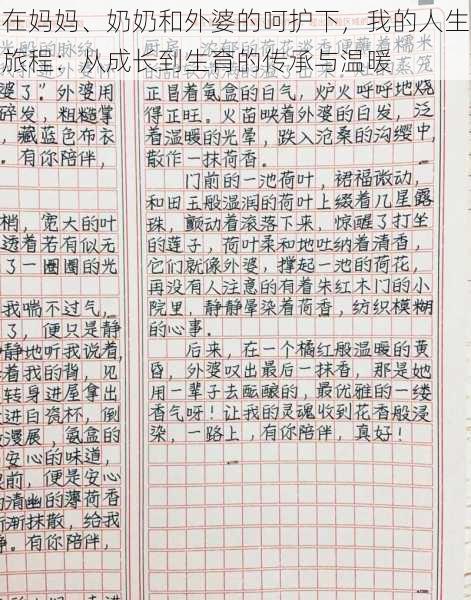 在妈妈、奶奶和外婆的呵护下，我的人生
旅程：从成长到生育的传承与温暖
外婆用
碎发，粗糙掌
，藏蓝色布衣
。有你陪伴，
梢，宽大的叶
透着若有似无
了一圈圈的光
我喘不过气，
了，便只是静
静地听我说着，
着我的背，见
转身进屋拿出
进白瓷杯，倒
漫展，氤氲的
安心的味道，
前，便是安心
清幽的薄荷香
渐抹散，给我
。有你陪伴，
正冒着氤氲的白气，炉火呼呼地烧
得正旺。火苗映着外婆的白发，泛
着温暖的光晕，跌入沧桑的沟缨中，
散作一抹荷香。
门前的一池荷叶，裙福微动，
和田玉般温润的荷叶上缀着几星露
珠，颤动着滚落下来，惊醒了打坐
的莲子，荷叶柔和地吐纳着清香，
它们就像外婆，撑起一池的荷花，
再没有人注意的有着朱红木门的小
院里，静静晕染着荷香，纺织模糊
的心事。
后来，在一个橘红般温暖的黄
昏，外婆叹出最后一抹香，那是她
用一辈子去酝酿的，最优雅的一缕
香气呀！让我的灵魂收到花香般浸
染，一路上，有你陪伴，真好！